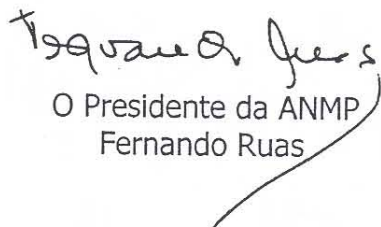 Fernando Ruas
O Presidente da ANMP
Fernando Ruas